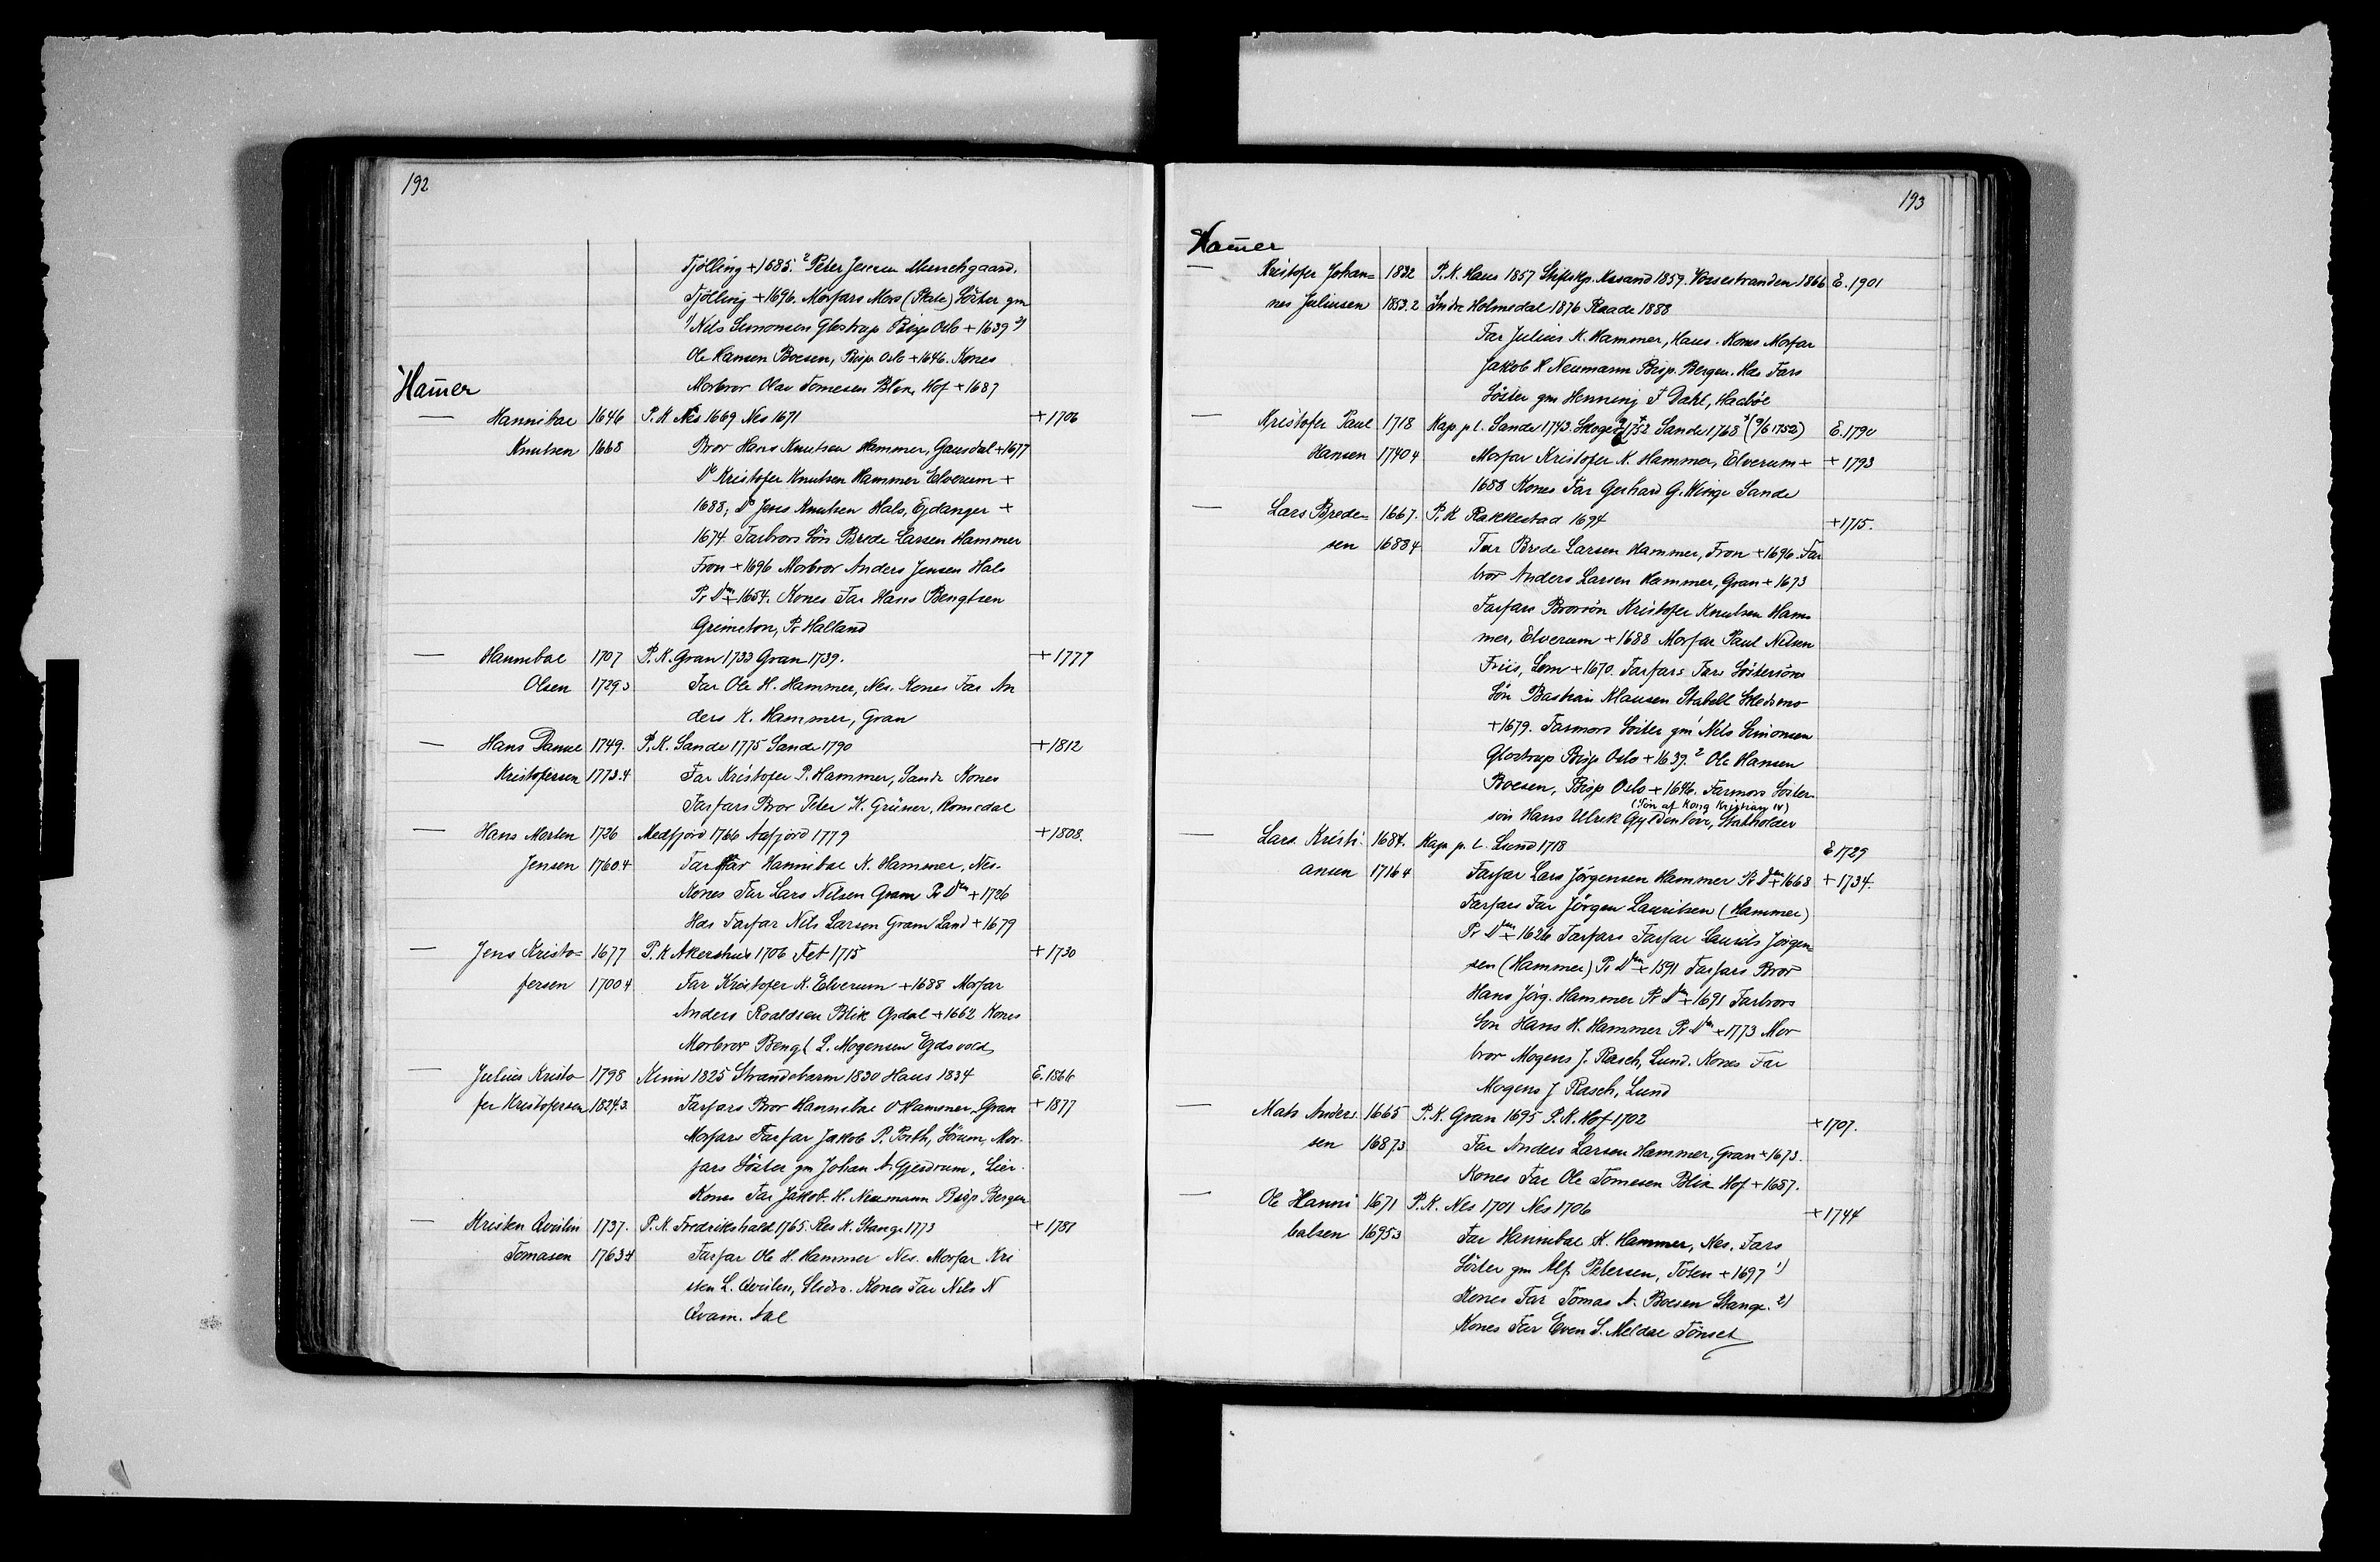 192
Tjölling +1685. 2 Peter Jensen Munchgaard.
Tjölling +1696. Morfars Mors (Stake) Söster gm
1) Nils Simonsen Glostrup Bisp Oslo +1639 2)
Ole Hansen Boesen, Bisp. Oslo +1646. Kones
Morbror Olav Tomesen Blix, Hof +1687
Ham̄er
— Hannibal 1646 P. K Nes 1669 Nes 1671 +1706
Knutsen 1668 Bror Hans Knutsen Hammer, Gausdal +1677
Do Kristofer Knutsen Hammer Elverum +
1688; Do Jens Knutsen Hals, Ejdanger +
1674. Farbrors Sön Brede Larsen Hammer
Fron +1696 Morbror Anders Jensen Hals
Pr Dm +1654. Kones Far Hans Bengtsen
Grimeton, Pr Halland
— Hannibal 1707 P. K. Gran 1733 Gran 1739. +1777
Olsen 1729.3 Far Ole H. Hammer, Nes. Kones Far An
ders K. Hammer, Gran
— Hans Danne 1749. P. K. Sande 1775 Sande 1790 +1812
Kristofersen 1773.4 Far Kristofer P. Hammer, Sande Kones
Farfars Bror Peter K. Grüner, Romsdal
— Hans Morten 1726 Medfjord 1766 Aafjord 1779 +1808.
Jensen 1760.4 Farfar Hannibal K. Hammer, Nes.
Kones Far Lars Nilsen Gram Pr Dm +1726
Hds Farfar Nils Larsen Gram Land +1679
— Jens Kristo= 1677 P. K Akershus 1706 Fet 1715 +1730
fersen 1700 4 Far Kristofer K. Elverum +1688 Morfar
Anders Roaldsen Blik Opdal +1662 Kones
Morbror Bengt L. Mogensen Ejdsvold
— Julius Kristo 1798 Kinn 1825 Strandebarm 1830 Haus 1834 E. 1866
fer Kristofersen 1824.3. Farfars Bror Hannibal O Hammer, Gran +1877
Morfars Farfar Jakob P. Porth, Sörum, Mor-
fars Söster gm Johan A. Gjerdrum, Lier.
Kones Far Jakob. H. Neumann Bisp. Bergen
— Kristen Qvislin 1737. P. K. Fredrikshald 1765. Res K. Stange 1773 +1781
Tomasen 1763.4 Farfar Ole H. Hammer Nes. Morfar Kri
sten L. Qvislin, Slidre. Kones Far Nils N
Qvam. Aal
193
Ham̄er
— Kristofer Johan= 1832 P. K. Haus 1857 Stiftskp. Krsand 1859. Vossestranden 1866 E. 1901
nes Juliusen 1853.2 Indre Holmedal 1876 Raade 1888
Far Julius K. Hammer, Haus. Kones Morfar
Jakob H Neumann Bisp. Bergen. Hds Fars
Söster gm Henning J Dahl, Hadsöe
— Kristofer Paul 1718 Kap p. l. Sande 1743. Skoger 1752 Sande 1768 (9/6 1752) E. 1790
Hansen 1740 4 Morfar Kristofer K. Hammer, Elverum + +1793
1688 Kones Far Gerhard G. Winge Sande
— Lars Brede= 1667. P. K Rakkestad 1694 +1715.
sen 1688 4 Far Brede Larsen Hammer, Fron +1696. Far
bror Anders Larsen Hammer, Gran +1673
Farfars Brorsön Kristofer Knutsen Ham
mer, Elverum +1688 Morfar Paul Nilsen
Friis, Lom +1670. Farfars Fars Söstersöns
Sön Bastian Klausen Stabell Skedsmo
+1679. Farmors Söster gm 1 Nils Simonsen
Glostrup Bisp Oslo +1639. 2 Ole Hansen
Boesen, Bisp Oslo +1646. Farmors Söster
(Sön af Kong Kristian IV)
sön Hans Ulrik Gyldenlöve, Statholder
— Lars Kristi 1684. Kap p. l. Lund 1718 E 1729
ansen 1716 4 Farfar Lars Jörgensen Hammer Pr Dm +1668 +1734.
Farfars Far Jörgen Lauritsen (Hammer)
Pr Dm +1626 Farfars Farfar Laurits Jörgen
sen (Hammer) Pr Dm +1591 Farfars Bror
Hans Jörg. Hammer Pr Dm +1691 Farbrors
Sön Hans H. Hammer Pr Dm +1773 Mor
bror Mogens J. Rasch, Lund. Kones Far
Mogens J Rasch, Lund
— Mats Anders 1665 P. K. Gran 1695 P. K. Hof 1702 +1707.
sen 1687.3 Far Anders Larsen Hammer, Gran +1673.
Kones Far Ole Tomesen Blix Hof +1687.
— Ole Hanni 1671 P. K. Nes 1701 Nes 1706 +1744
balsen 1695.3 Far Hannibal K. Hammer, Nes. Fars
Söster gm Alf Petersen, Toten +1697 1)
Kones Far Tomas A. Boesen Stange. 2)
Kones Far Even S. Meldal Tönset